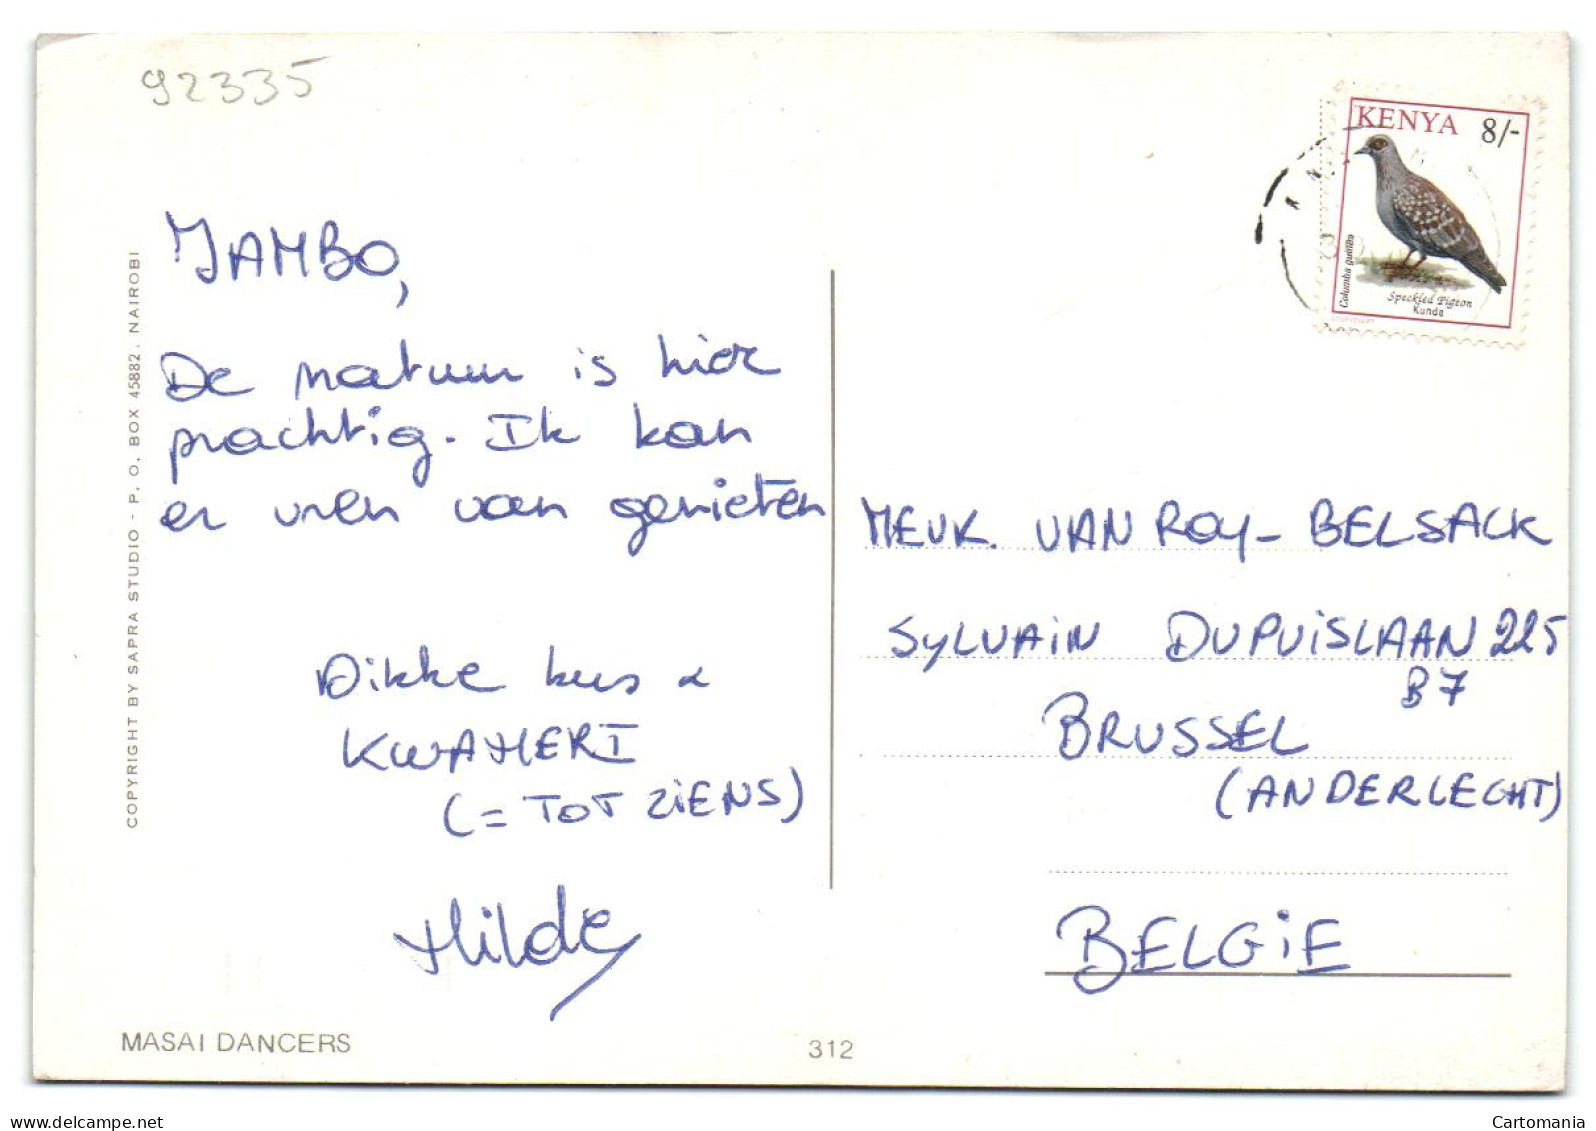 92335
KENYA 8/-
Columba guinea
Speckled Pigeon
Kunda
JAMBO,
De natuur is hier
prachtig. Ik kan
er uren van genieten
Dikke kus &
KWAHERI
(= TOT ZIENS)
Hilde
MEVR. VAN ROY - BELSACK
SYLVAIN DUPUISLAAN 225
B7
BRUSSEL
(ANDERLECHT)
BELGIE
COPYRIGHT BY SAPRA STUDIO - P. O. BOX 45882, NAIROBI
MASAI DANCERS
312
www.delcampe.net
Cartomania